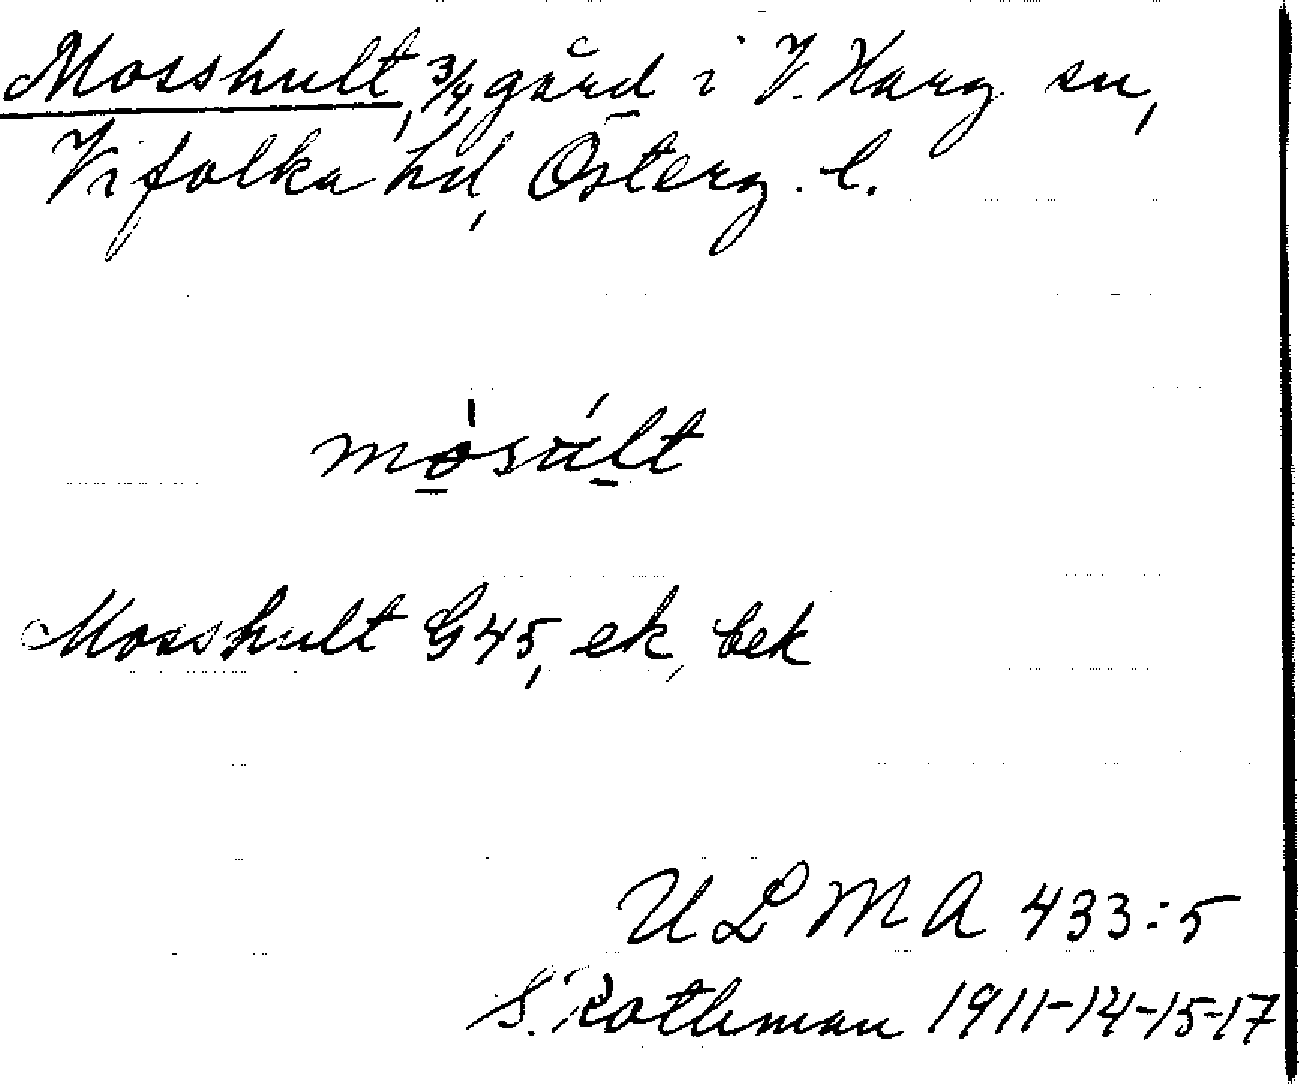 Mosshult, 3/4 gård i V. Harg sn,
Vifolka hd, Österg. l.
mösúlt
Mosshult G45, ek, bek
ULMA 433:5
S. Rothman 1911-14-15-17